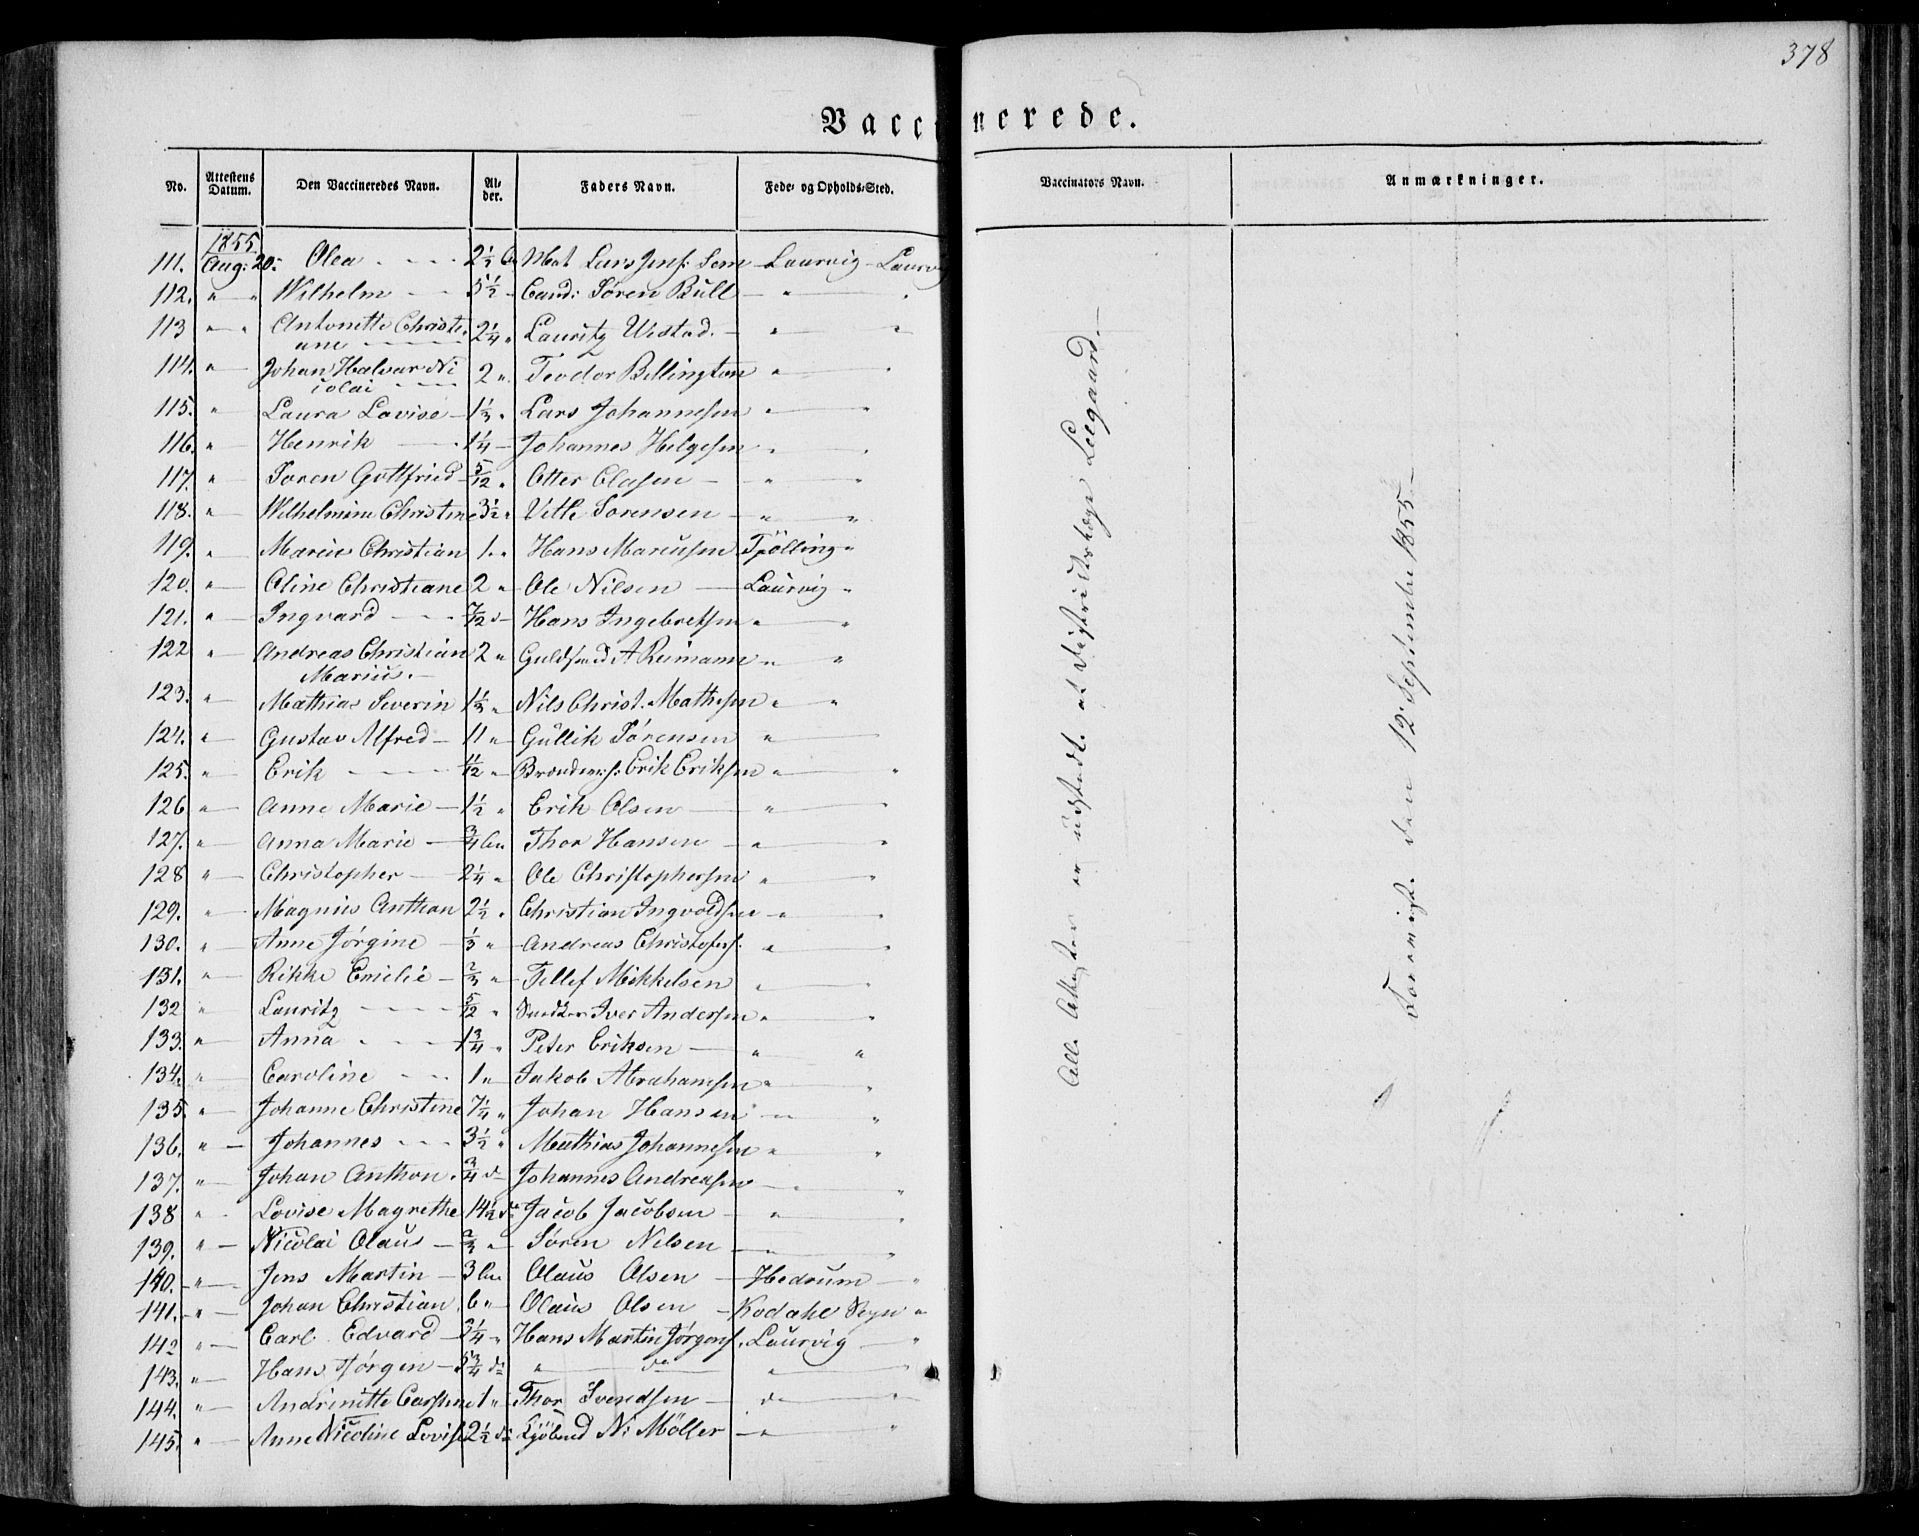 378
Vaccinerede.
No. Attestens Datum. Den Vaccineredes Navn. Alder. Faders Navn. Føde- og Opholds-Sted. Vaccinators Navn. Anmærkninger.
1855
111. Aug: 20. Olea 2 1/2 Mat Lars Jens: Sem Laurvig - Laurvig
112. " " Wilhelm 5 1/2 " Cand: Søren Bull " "
113 " " Antonette Christi-
ane 2 1/4 " Lauritz Wistad. " "
114. " Johan Halvar Ni
colai 2 " Teodor Billington " "
115. " Laura Lovise 1 1/3 " Lars Johannesen " "
116. " Henrik 1 1/4 Johannes Helgesen " "
117. " Soren Gottfried 5/12 " Otter Olasen " "
118. " Wilhelmine Christine 3 1/2 " Vetle Sorensen " "
119. " Marius Christian 1. " Hans Marcusen Tjölling "
120. " Oline Christiane 2 " Ole Nilsen Laurvig "
121. " Ingvard 7/12 d Hans Ingebretsen " "
122 " Andreas Christian
Marius. 2 " Guldsmed A Reimann " "
123. " Mathias Severin 1 1/3 " Nils Christ. Mathesen " "
124. " Gustav Alfred 11 " Gullik Sørensen "
125. " Erik 11/12 " Erik Eriksen " "
126 " Anne Marie 1 1/2 " Erik Olsen " "
127. " Anna Marie 3/4 Thor Hansen " "
128 " Christopher 2 1/4 " Ole Christophersen " "
129. " Magnus Anthon 2 1/2 " Christian Ingvoldsen " "
130. " Anne Jørgine 1/3 " Andreas Christofers. " "
131. " Rikke Emilie 2/3 " Tellef Mikkelsen " "
132 " Lauritz 5/12 " Iver Andersen " "
133. " Anna 1 3/4 " Peter Eriksen " "
134. " Caroline 1 " Jakob Abrahamsen " "
135 " Johanne Christine 7 1/4 " Johan Hansen " "
136. " Johannes 3 1/2 " Mathias Johannesen " "
137. " Johan Anthon. 3/4 d Johannes Andreasen " "
138 " Lovise Magrethe 14 1/2 d Jacob Jacobsen " "
139. " Nicolai Olaus 2/3 " Søren Nilsen " "
140. " Jens Martin 3 Olaus Olsen Hedrum "
141. " Johan Christian 6 " Olaus Olsen Kodahl Sogn "
142 " Carl Edvard 3 1/4 " Hans Martin Jørgens. Laurvig "
143. " Hans Jørgen 5 3/4 d " do " "
144. " Andrinette Carstine 1 " Thor Svendsen do "
145. " Anne Nicoline Lovise 2 1/2 d Kjöbmd N: Möller " "
Alle Attester er udstedt. af Districtslæge Leegaard.
den 12 September 1855